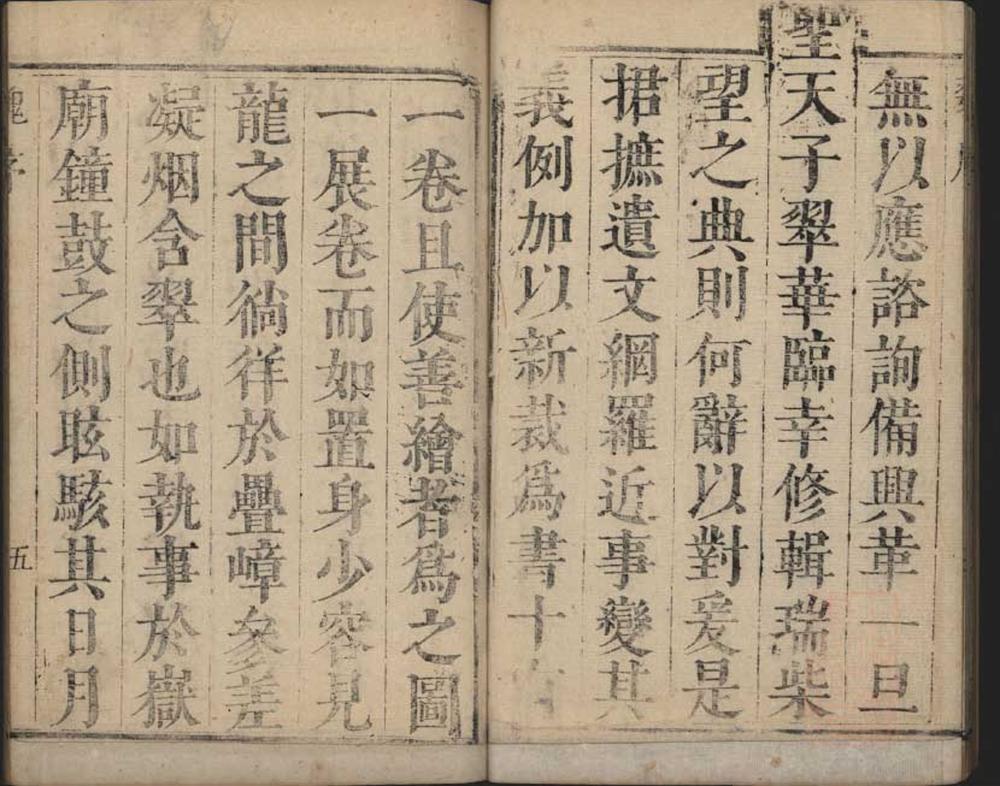 無以應諮詢備興革一旦
聖天子翠華臨幸修輯瑞柴
望之典則何辭以對爰是
捃摭遺文網羅近事變其
義例加以新裁爲書十
一卷且使善繪者爲之圖
一展卷而如置身少容見
龍之間徜徉於疊嶂參差
凝烟含翠也如執事於嶽
廟鐘鼓之側眩駭其日月
序
五